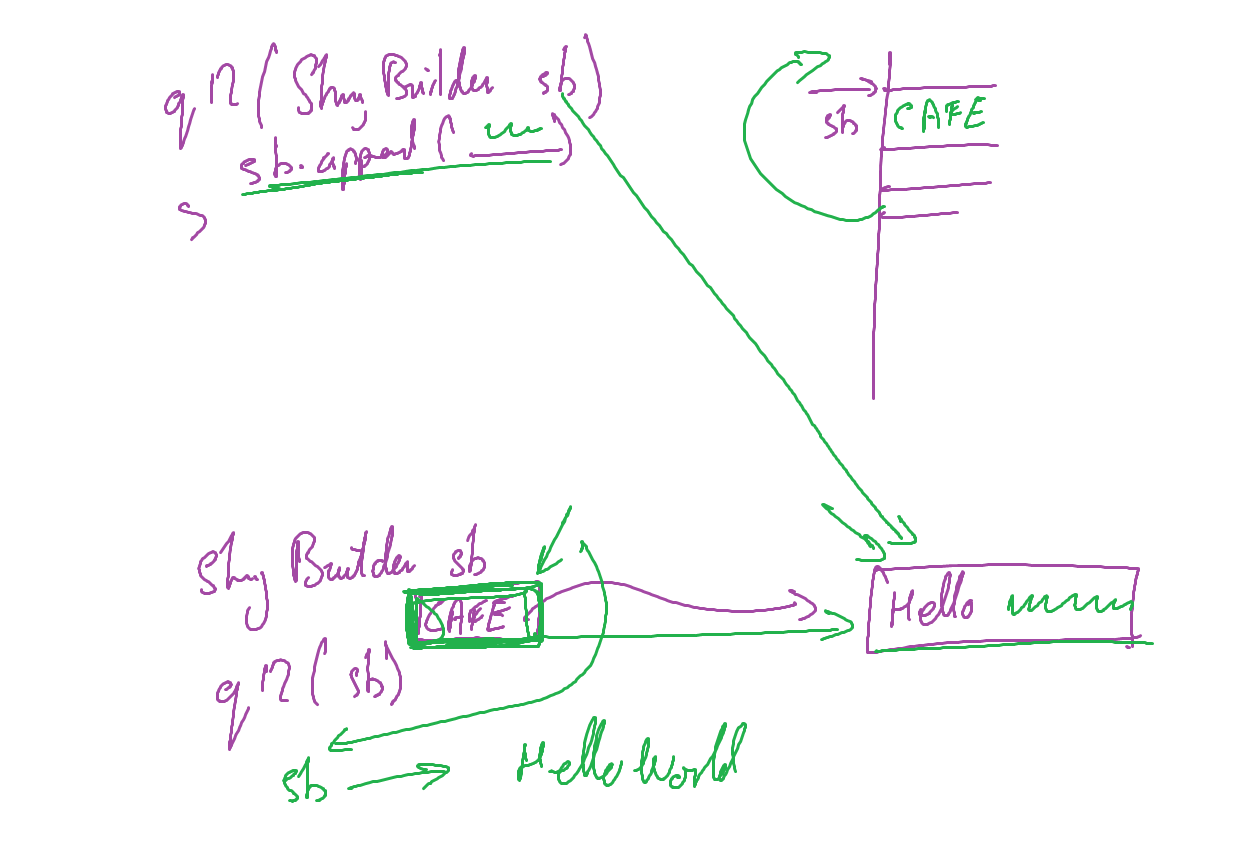 q12(String Builder sb)
sb.append( )
sb CAFE
String Builder sb
CAFE
Hello
q12(sb)
sb → Hello World